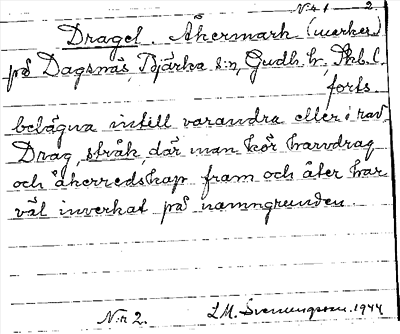 N:r 1 — 2.
Dragel. Åkermark (uverkes.)
på Dagsnäs, Bjärka s:n, Gudh. h., Skb. l.
forts.
belägna intill varandra eller i rad.
Drag, stråk, där man kör harvdrag
och åkerredskap fram och åter har
väl inverkat på namngrunden.
N:r 2. L. M. Svenungsson. 1944